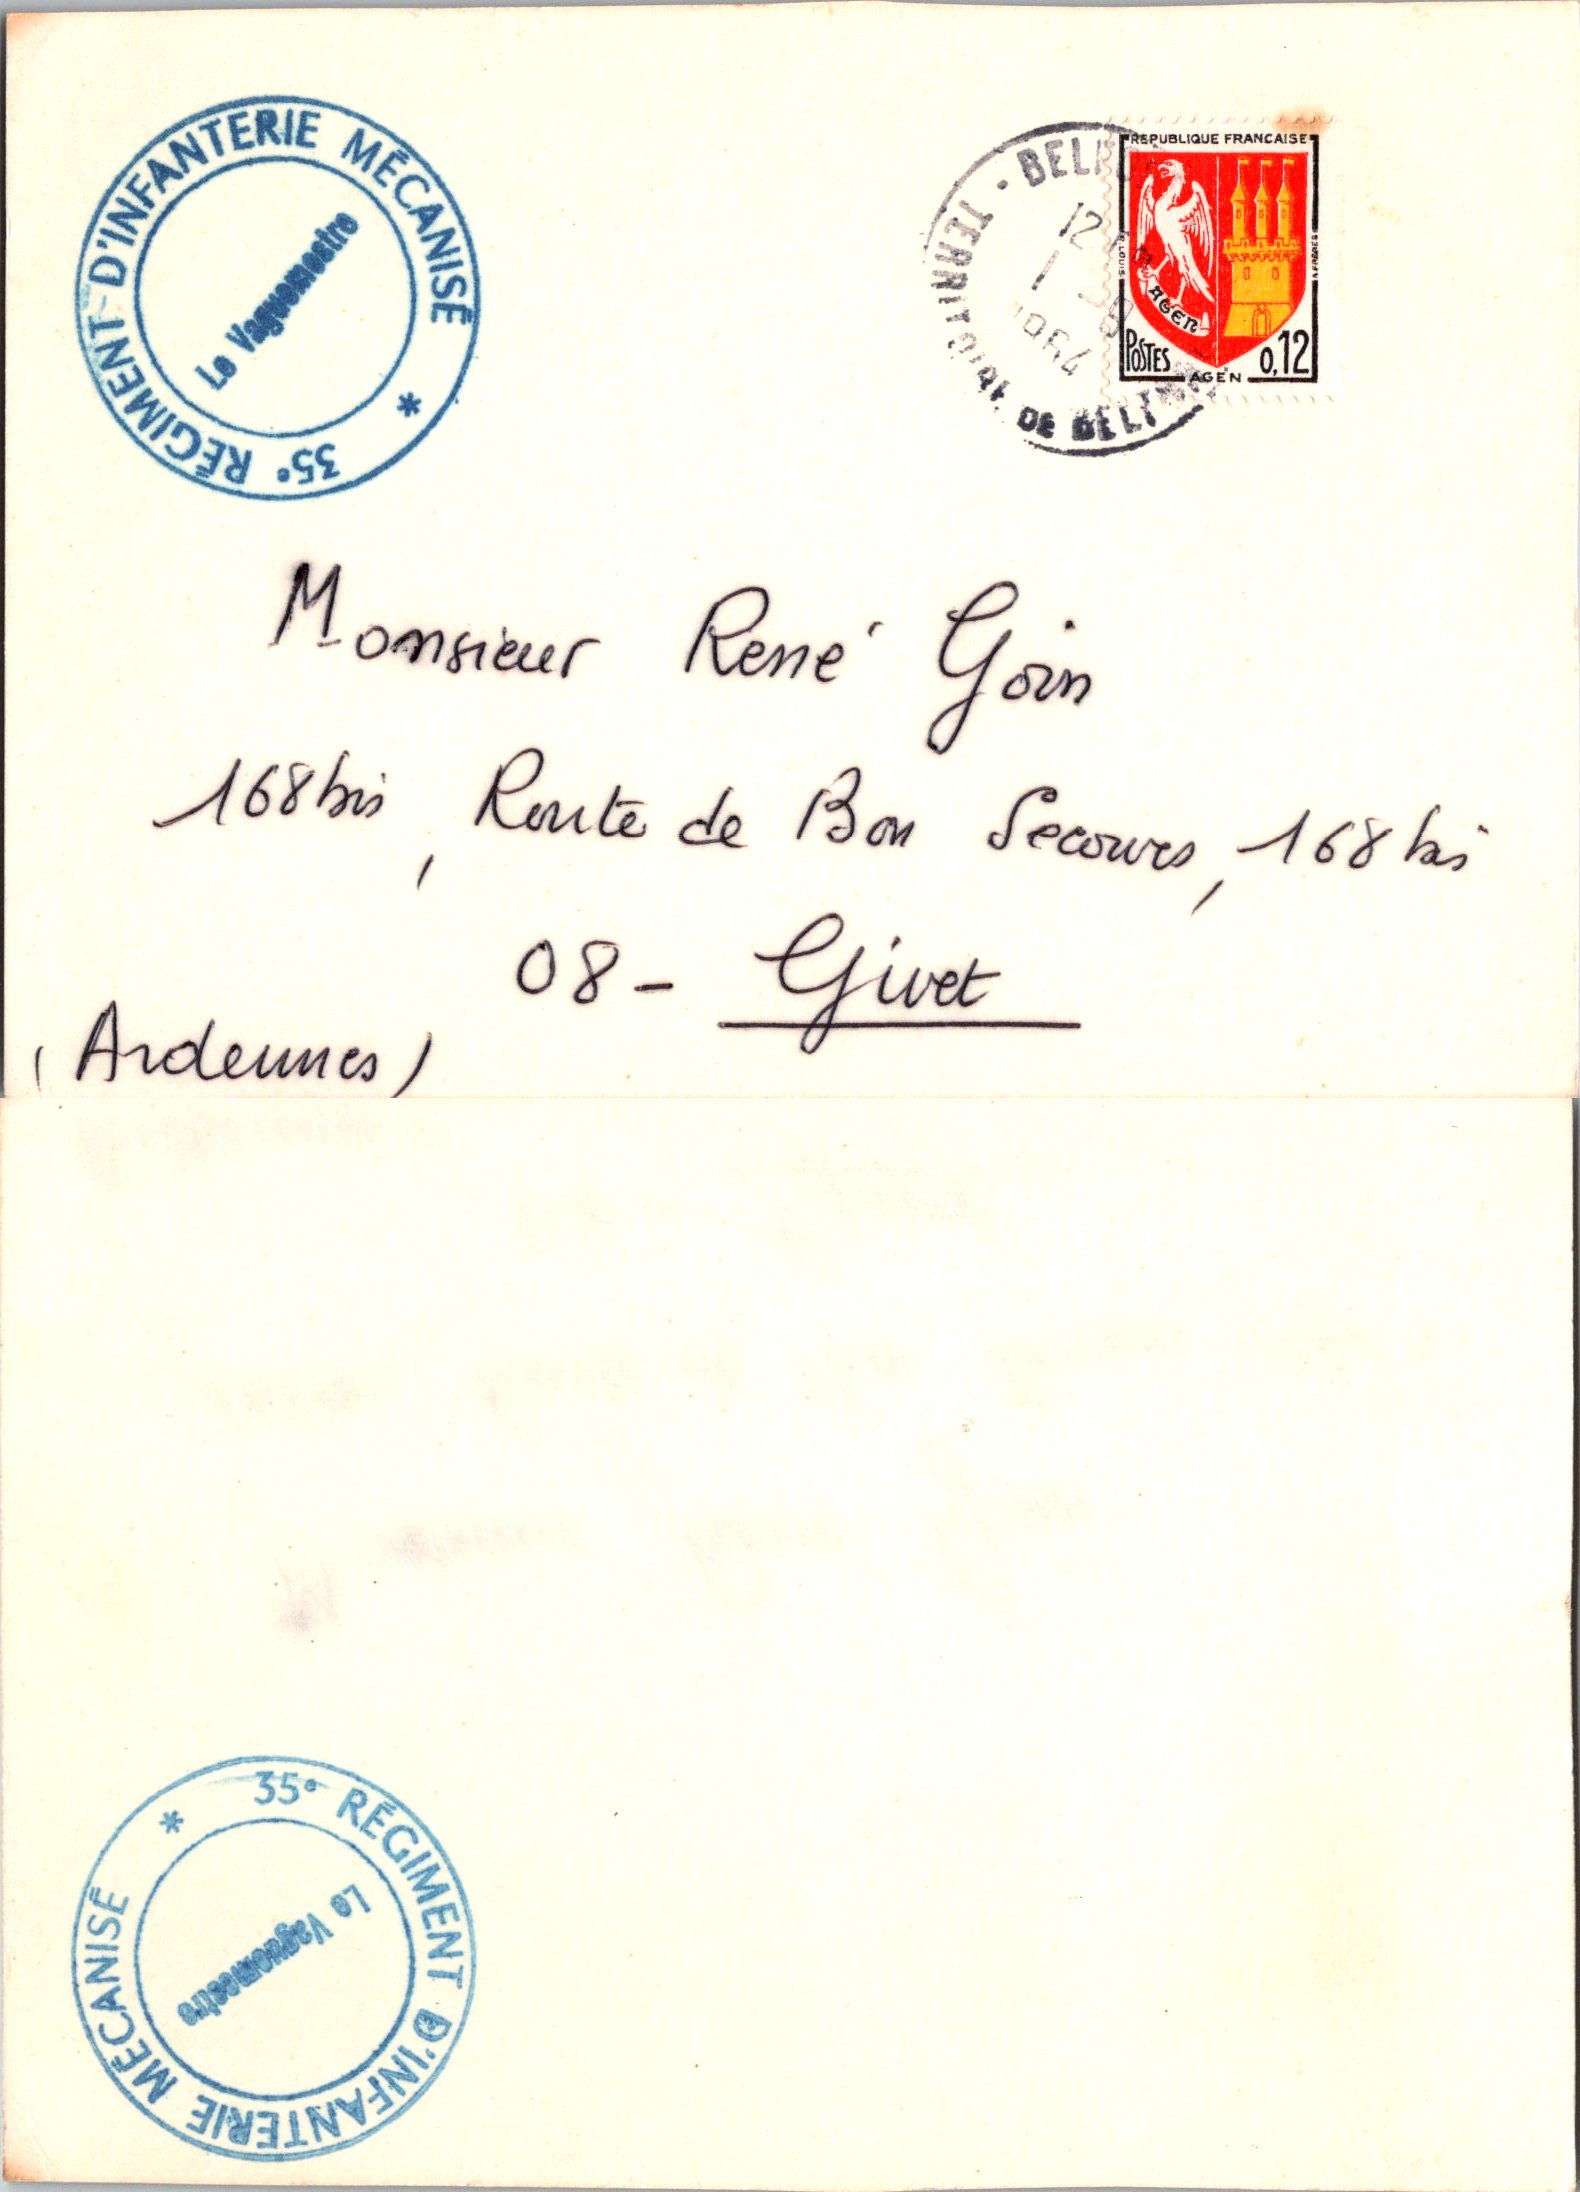 35e RÉGIMENT D'INFANTERIE MÉCANISÉ *
Le Vaguemestre
TERRITOIRE DE BELFORT
12
1
1964
REPUBLIQUE FRANCAISE
AGEN
POSTES
0,12
AGEN
Monsieur René Goin
168 bis, Route de Bon Secours, 168 bis
08 - Givet
(Ardennes)
35e RÉGIMENT D'INFANTERIE MÉCANISÉ *
Le Vaguemestre